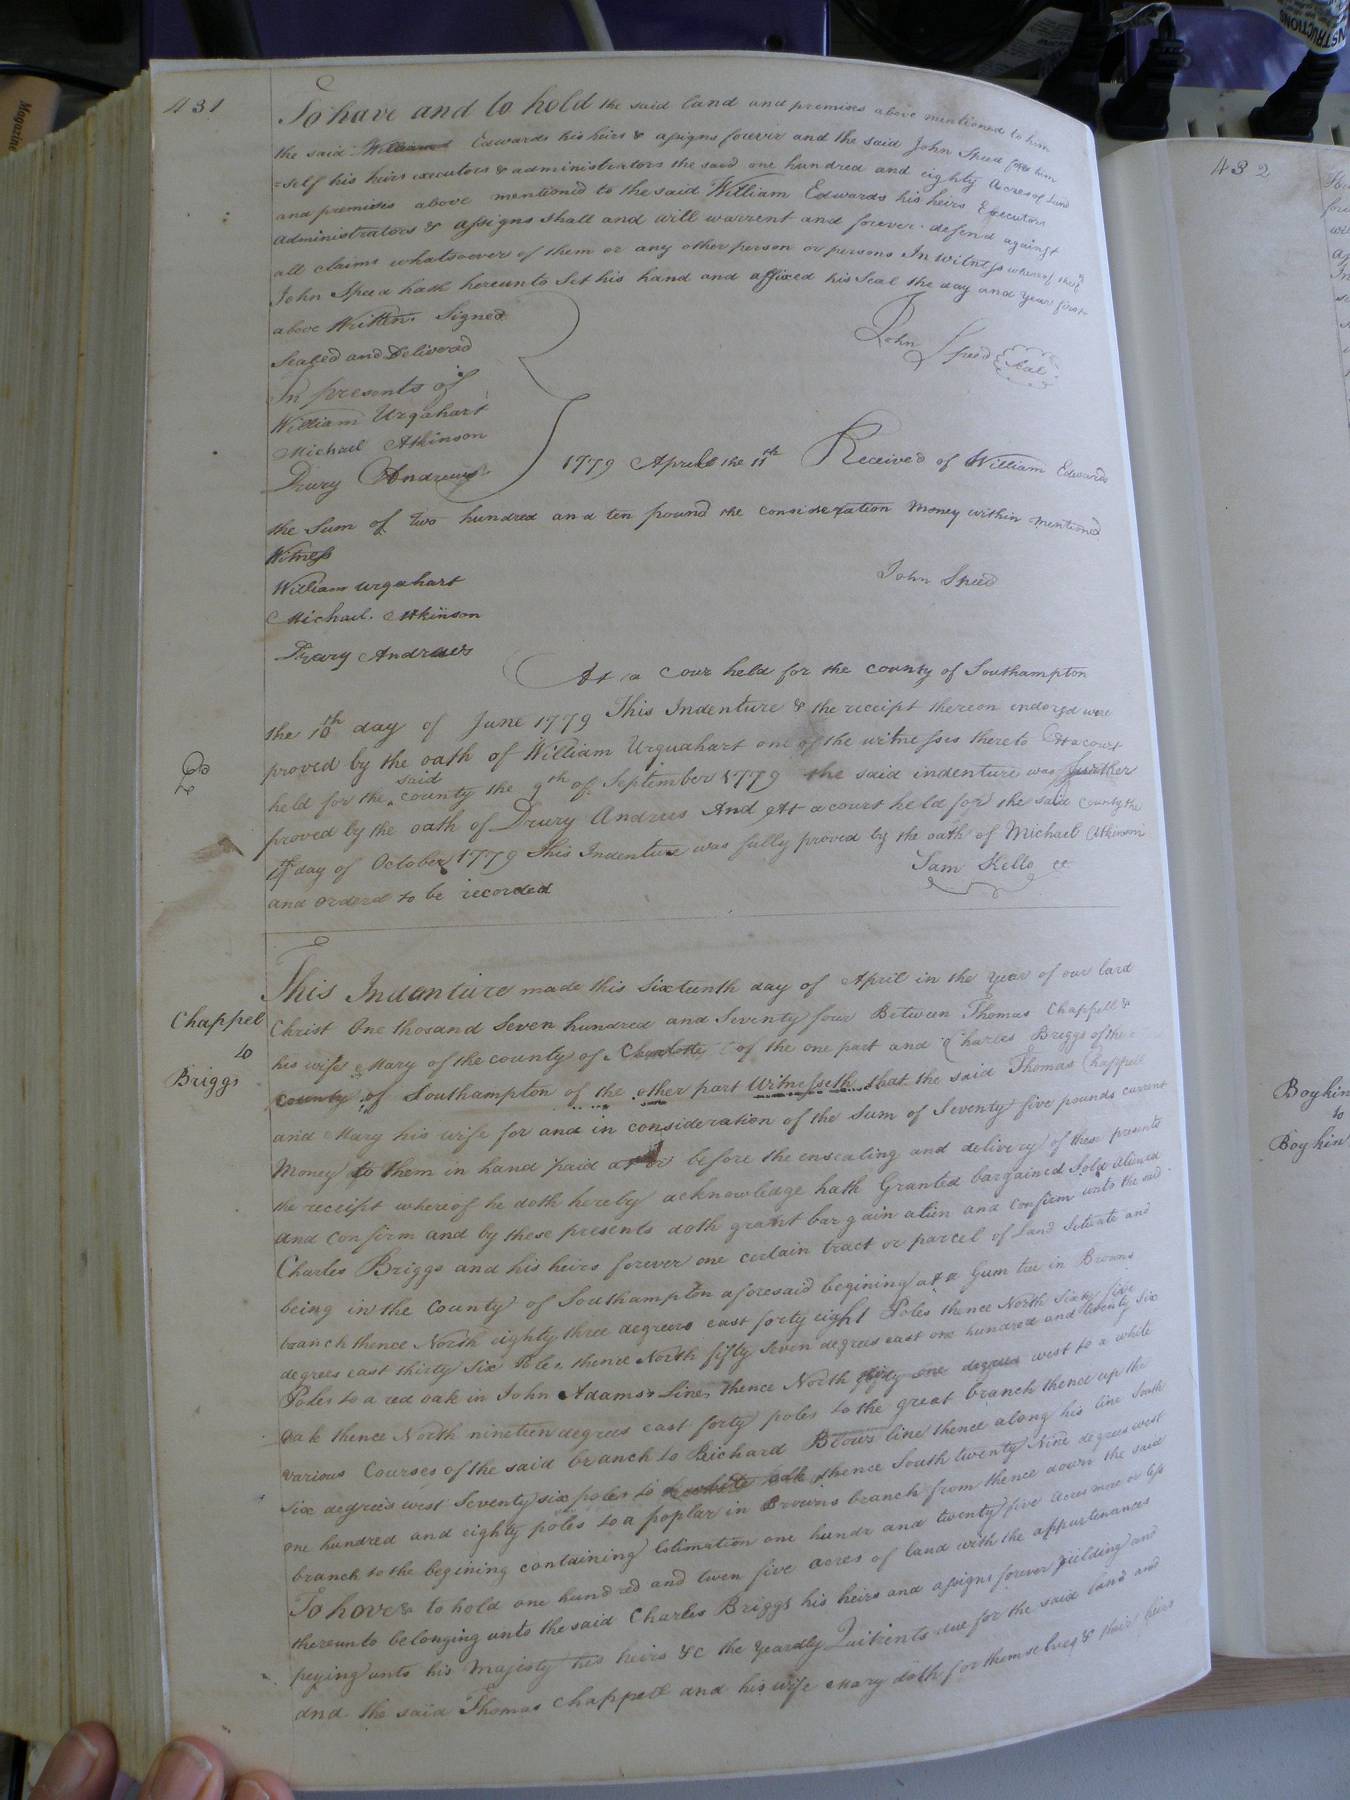 431
To have and to hold the said land and premises above mentioned to him
the said William Edwards his heirs & assigns forever and the said John Speed for him
=self his heirs executors & administrators the said one hundred and eighty Acres of Land
and premises above mentioned to the said William Edwards his heirs Executors
Administrators & assigns shall and will warrent and forever defend against
all claims whatsoever of them or any other person or persons In Witness whereof the sd
John Speed hath hereunto Set his hand and affixed his Seal the day and year first
above Written. Signed
Sealed and Delivered
In presents of
John Speed Seal
William Urqahart
Michael Atkinson
Drury Andrews
1779 April the 11th Received of William Edwards
the Sum of two hundred and ten pound the consideration Money within mentioned
Witness
William urqahart
John Speed
Michael. Atkinson
Drury Andrews
At a Cour held for the county of Southampton
the 10th day of June 1779 This Indenture & the receipt thereon endorsd were
proved by the oath of William Urquahart one of the witnesses thereto At a court
held for the said county the 9th of September 1779 the said indenture was further
proved by the oath of Drury Andrus And At a court held for the said county the
day of October 1779 This Indenture was fully proved by the oath of Michael Atkinson
and orderd to be recorded
Sam Kello cc
Chappel
to
Briggs
This Indenture made this Sixteenth day of April in the year of our lard
Christ One thosand Seven hundred and Seventy four Between Thomas Chappell &
his wife Mary of the county of Charlotte of the one part and Charles Briggs of the
County of Southampton of the other part Witnesseth that the said Thomas Chappell
and Mary his wife for and in consideration of the Sum of Seventy five pounds current
Money to them in hand paid at or before the ensealing and delivery of these presents
the receipt whereof he doth hereby acknowledge hath Granted bargained Sold aliened
and confirm and by these presents doth grant bargain alien and confirm unto the said
Charles Briggs and his heirs forever one certain tract or parcel of Land Setuate and
being in the County of Southampton aforesaid begining at a Gum tree in Browns
branch thence North eighty three degrees east forty eight Poles thence North Sixty five
degrees east thirty Six Poles thence North fifty Seven degrees east one hundred and twenty Six
Poles to a red oak in John Adams's Line, thence North thirty one degrees west to a white
oak thence North nineteen degrees east forty poles to the great branch thence up the
various Courses of the said branch to Richard Brows line thence along his line South
Six degrees west Seventy six poles to a white oak thence South twenty Nine degrees west
one hundred and eighty poles to a poplar in Browns branch from thence down the said
branch to the begining containing Estimation one hundr and twenty five acres more or less
To hove & to hold one hundred and twen five acres of land with the appurtenances
thereunto belonging unto the said Charles Briggs his heirs and assigns forever yeilding and
peying unto his Majesty his heirs &c the yeardly Quitrents due for the said land and
and the said Thomas Chappell and his wife Mary doth for themselves & their heirs
432
Boykin
to
Boykin